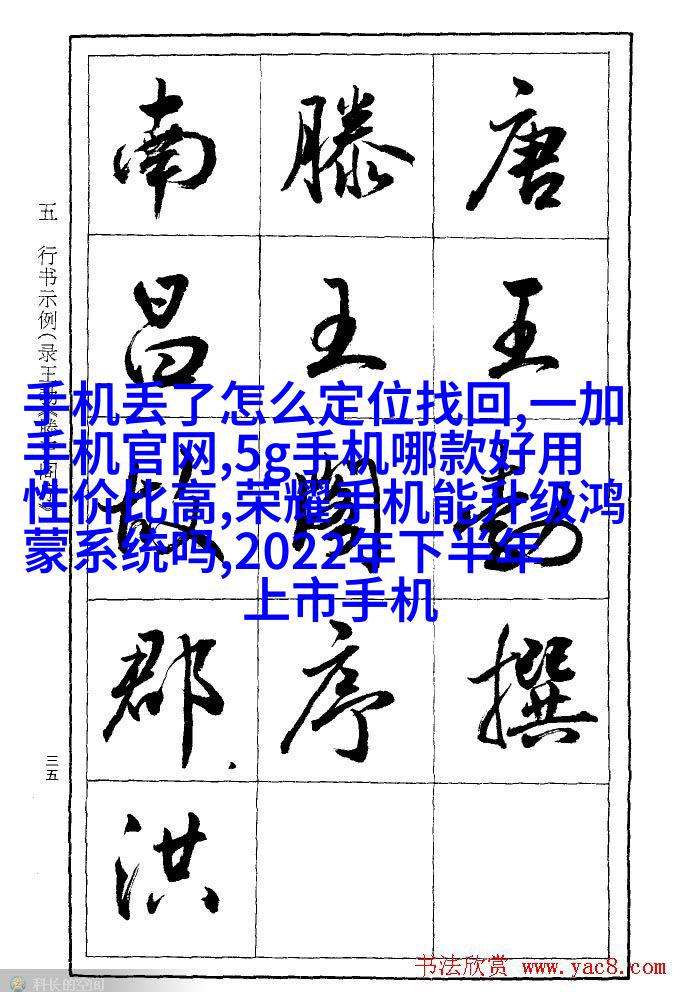 唐王勃撰
滕王閣序
南昌故郡洪
五 行书示例(录王勃《滕王阁序》)
三五
手机丢了怎么定位找回,一加
手机官网,5g手机哪款好用
性价比高,荣耀手机能升级鸿
蒙系统吗,2022年下半年
上市手机
书法欣赏 www.yac8.com
科长的空间